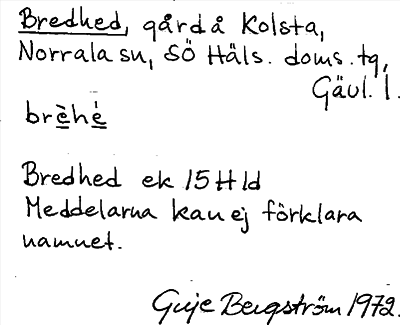 Bredhed, gård å Kolsta,
Norrala sn, SÖ Häls. doms. tg,
Gävl. l.
brèhé
Bredhed ek 15 H ld
Meddelarna kan ej förklara
namnet.
Guje Bergström 1972.